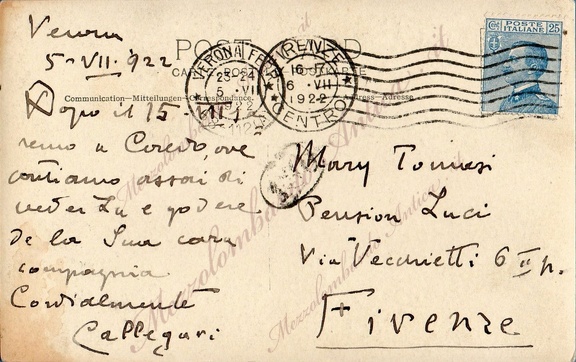 Verona
5-VII.922
POST CARD
POSTE ITALIANE 25
VERONA FERR
23-24
5 VII
1922
FIRENZE
16-17
6 · VII
1922
CENTRO
Communication—Mittheilungen—Correspondance.
Adresse
Dopo il 15-VII
remo a Coredo, ove
contiamo assai di
veder La e godere
de la Sua cara
compagnia
Cordialmente
Callegari
Mary Tomasi
Pension Luci
Via Vecchietti 6 II p.
Firenze
Mezzolombardo Antica.it